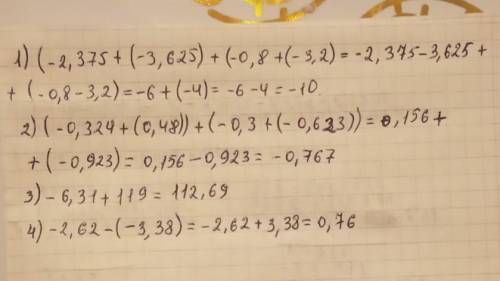 1) (-2,375 + (-3,625) + (-0,8 + (-3,2) = -2,375 - 3,625 +
+ (-0,8 - 3,2) = -6 + (-4) = -6 - 4 = -10.
2) (-0,324 + (0,48)) + (-0,3 + (-0,623)) = 0,156 +
+ (-0,923) = 0,156 - 0,923 = -0,767
3) -6,31 + 119 = 112,69
4) -2,62 - (-3,38) = -2,62 + 3,38 = 0,76